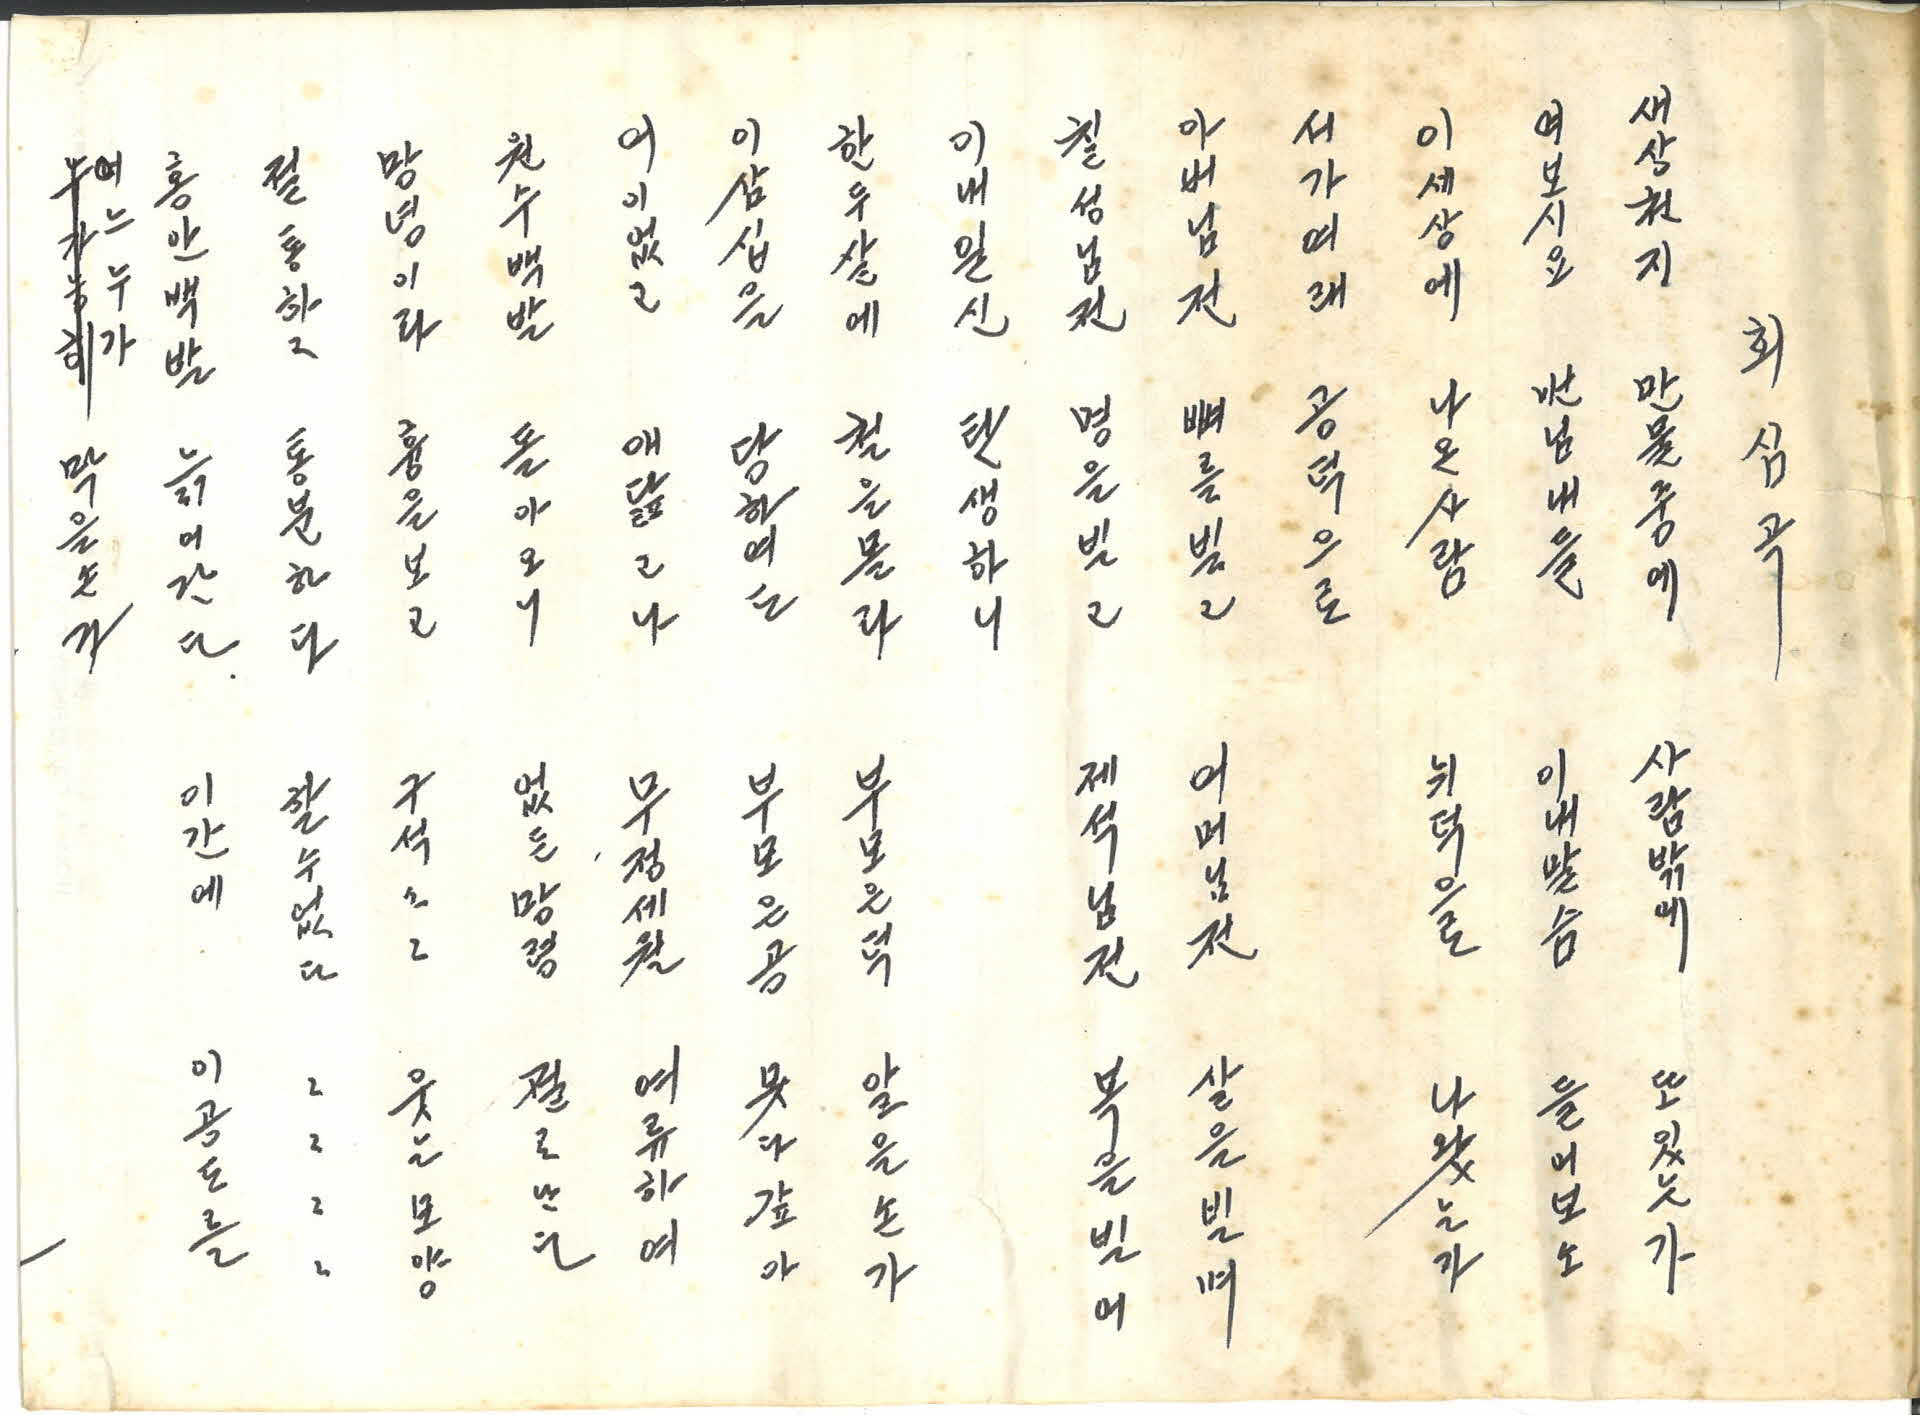 회심곡
새상천지 만물중에 사람밖에 또있는가
여보시요 번님내들 이내말슴 들어보소
이세상에 나온사람 뉘덕으로 나왔는가
서가여래 공덕으로
아버님전 뼈를빌고 어머님전 살을빌며
칠성님전 명을빌고 제석님전 복을빌어
이내일신 탄생하니
한두살에 철을몰라 부모은덕 알을손가
이삼십을 당하여는 부모은공 못다갚아
어이없고 애닯고나 무정세월 여류하여
원수백발 돌아오니 없든망령 절로난다
망녕이라 흉을보고 구석소고 웃는모양
절통하고 통분하다 할수없다 〻〻〻〻
홍안백발 늙어간다. 이간에 이공도를
여느누가 막을손가